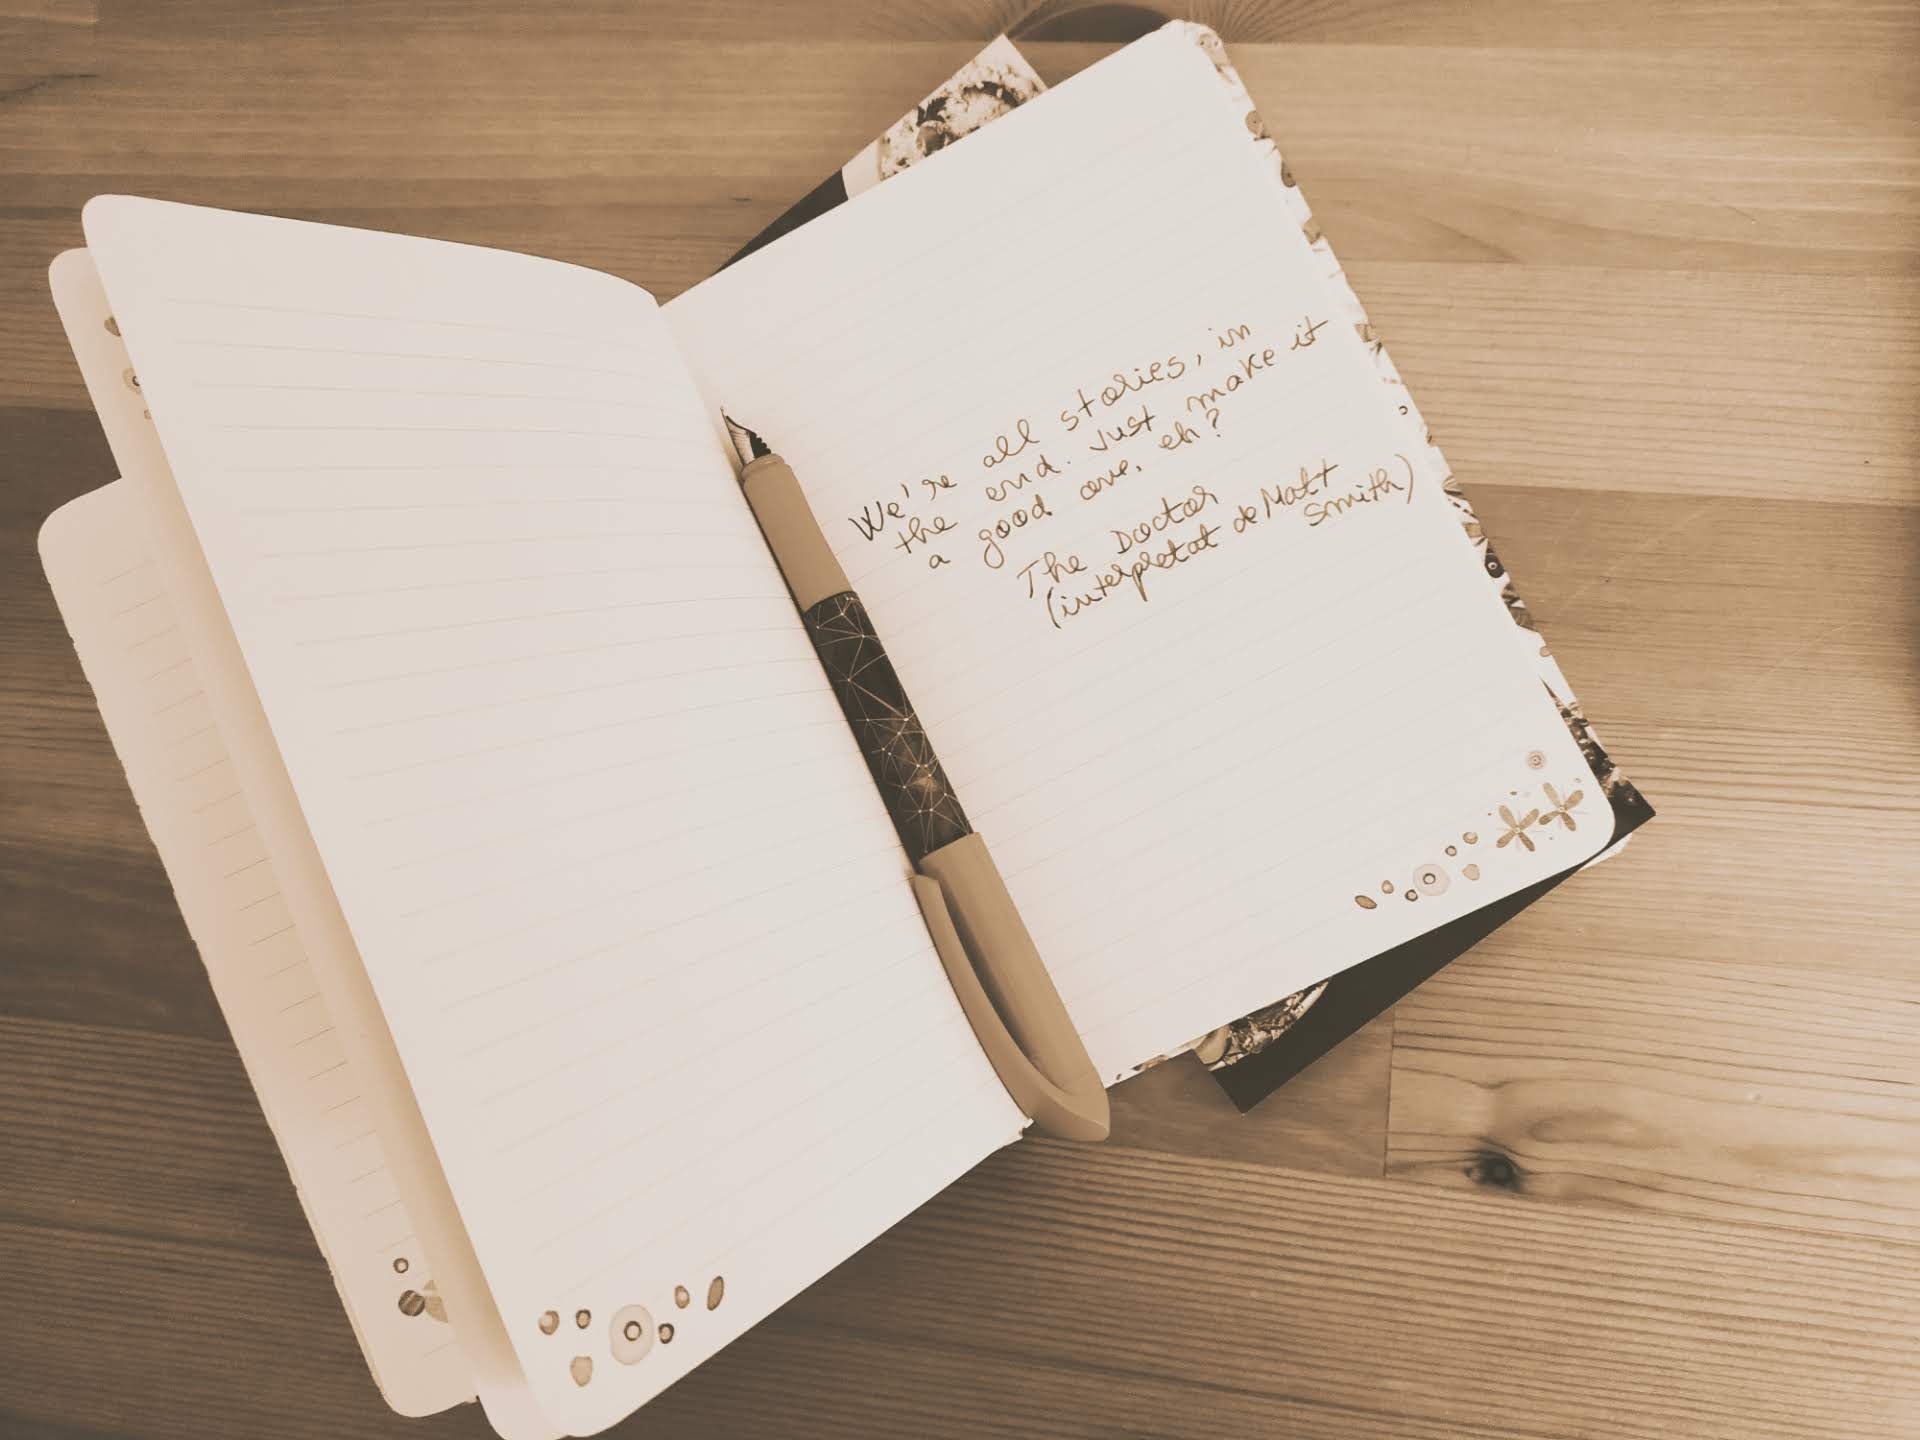 We're all stories, in
the end. Just make it
a good one, eh?
The Doctor
(interpretat de Matt
Smith)